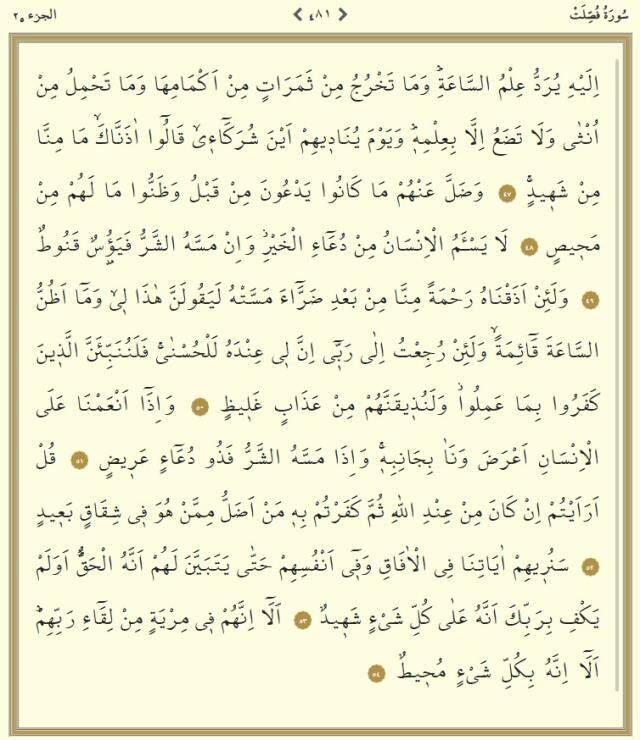 سُورَةُ فُصِّلَتْ
٤٨١
الجزء ٢٥
اِلَيْهِ يُرَدُّ عِلْمُ السَّاعَةِۜ وَمَا تَخْرُجُ مِنْ ثَمَرَاتٍ مِنْ اَكْمَامِهَا وَمَا تَحْمِلُ مِنْ
اُنْثٰى وَلَا تَضَعُ اِلَّا بِعِلْمِه۪ۜ وَيَوْمَ يُنَاد۪يهِمْ اَيْنَ شُرَكَٓاء۪يۙ قَالُٓوا اٰذَنَّاكَۙ مَا مِنَّا
مِنْ شَه۪يدٍۚ ٤٧ وَضَلَّ عَنْهُمْ مَا كَانُوا يَدْعُونَ مِنْ قَبْلُ وَظَنُّوا مَا لَهُمْ مِنْ
مَح۪يصٍ ٤٨ لَا يَسْـَٔمُ الْاِنْسَانُ مِنْ دُعَٓاءِ الْخَيْرِۘ وَاِنْ مَسَّهُ الشَّرُّ فَيَؤُ۫سٌ قَنُوطٌ
٤٩ وَلَئِنْ اَذَقْنَاهُ رَحْمَةً مِنَّا مِنْ بَعْدِ ضَرَّٓاءَ مَسَّتْهُ لَيَقُولَنَّ هٰذَا ل۪يۙ وَمَٓا اَظُنُّ
السَّاعَةَ قَٓائِمَةًۙ وَلَئِنْ رُجِعْتُ اِلٰى رَبّ۪ٓي اِنَّ ل۪ي عِنْدَهُ لَلْحُسْنٰىۚ فَلَنُنَبِّئَنَّ الَّذ۪ينَ
كَفَرُوا بِمَا عَمِلُواۘ وَلَنُذ۪يقَنَّهُمْ مِنْ عَذَابٍ غَل۪يظٍ ٥٠ وَاِذَٓا اَنْعَمْنَا عَلَى
الْاِنْسَانِ اَعْرَضَ وَنَاٰ بِجَانِبِه۪ۚ وَاِذَا مَسَّهُ الشَّرُّ فَذُو دُعَٓاءٍ عَر۪يضٍ ٥١ قُلْ
اَرَاَيْتُمْ اِنْ كَانَ مِنْ عِنْدِ اللّٰهِ ثُمَّ كَفَرْتُمْ بِه۪ مَنْ اَضَلُّ مِمَّنْ هُوَ ف۪ي شِقَاقٍ بَع۪يدٍ
٥٢ سَنُر۪يهِمْ اٰيَاتِنَا فِي الْاٰفَاقِ وَف۪ٓي اَنْفُسِهِمْ حَتّٰى يَتَبَيَّنَ لَهُمْ اَنَّهُ الْحَقُّۜ اَوَلَمْ
يَكْفِ بِرَبِّكَ اَنَّهُ عَلٰى كُلِّ شَيْءٍ شَه۪يدٌ ٥٣ اَلَٓا اِنَّهُمْ ف۪ي مِرْيَةٍ مِنْ لِقَٓاءِ رَبِّهِمْۜ
اَلَٓا اِنَّهُ بِكُلِّ شَيْءٍ مُح۪يطٌ ٥٤